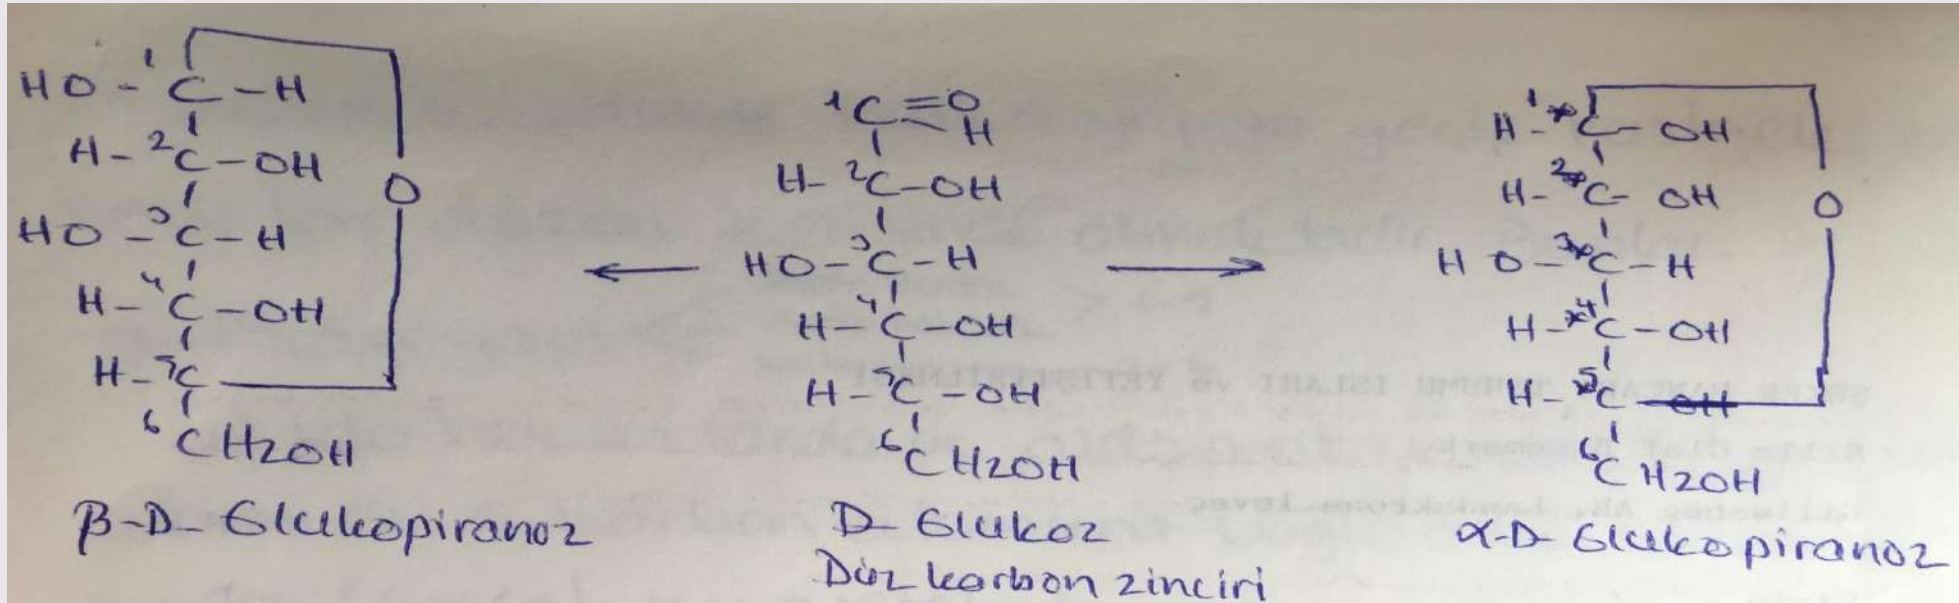 HO - ¹C - H
H - ²C - OH
HO - ³C - H
H - ⁴C - OH
H - ⁵C
⁶CH2OH
O
β-D- Glukopiranoz
¹C = O
H
H- ²C - OH
HO - ³C - H
H - ⁴C - OH
H - ⁵C - OH
⁶CH2OH
D- Glukoz
Düz karbon zinciri
H - ¹C - OH
H - ²C - OH
HO - ³C - H
H - ⁴C - OH
H - ⁵C - OH
⁶CH2OH
O
α-D- Glukopiranoz